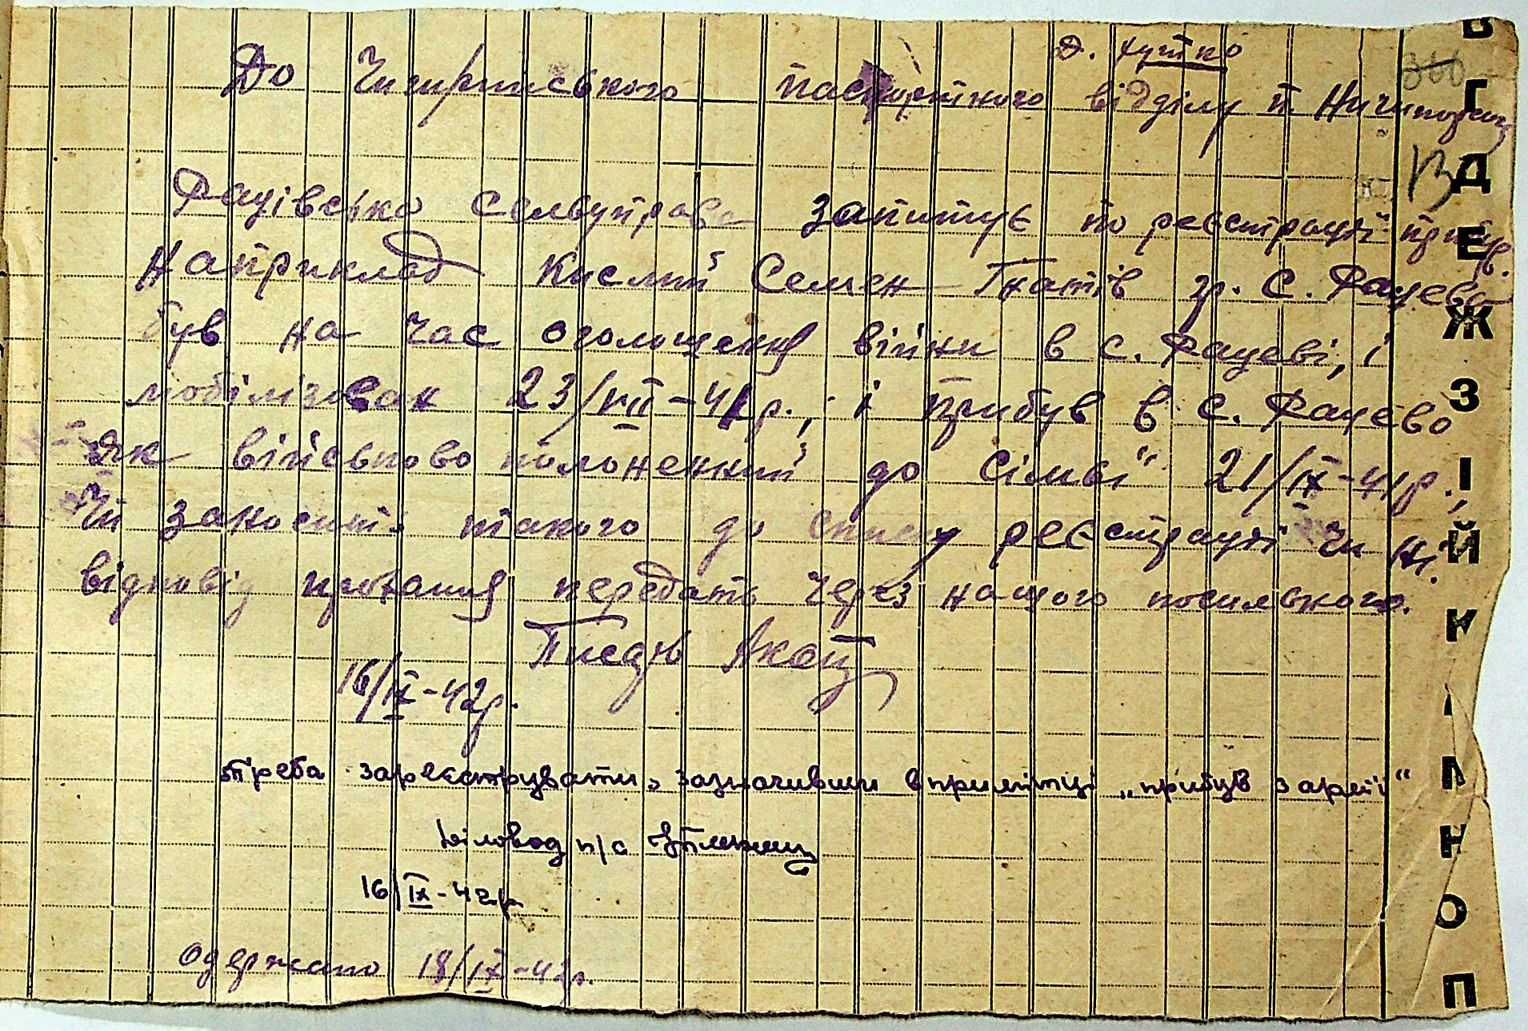 Д. хутко
До Чигиринського паспортного відділу п. Ничипоренц
366
13
Рацівсько сельуправа запитує по реєстрації прибув.
Наприклад Кислий Семен Гнатів гр. С. Рацево
був на час оголощення війни в с. Рацеві, і
мобілізован 23/VII-41р., і прибув в с. Рацево
як військово полоненний до сімьї 21/IX-41р.,
Чи заносить такого до списку реєстрації чи ні.
відповід прохання передать через нащого посильного.
16/IX-42р.
Треба зареєструвати, зазначивши в примітці „прибув з армії"
Діловод п/с
16/IX-42р
Одержано 18/IX-42р.
В
Г
Д
Е
Ж
З
І
Й
К
Л
М
Н
О
П